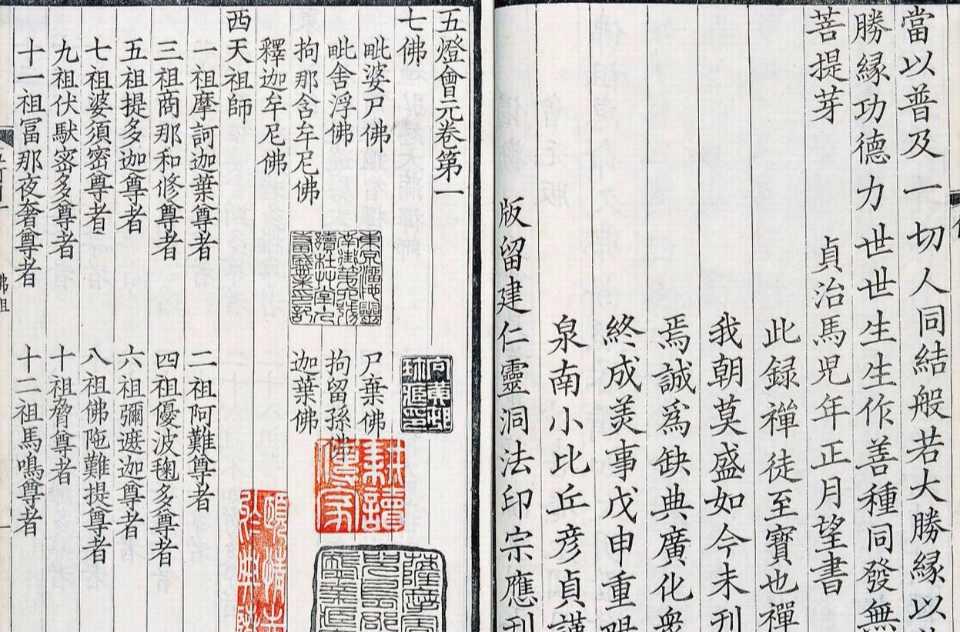 當以普及一切人同結般若大勝緣以
勝緣功德力世世生生作善種同發無
菩提芽 貞治馬兒年正月望書
此録禪徒至寶也禪
我朝莫盛如今未刊
焉誠爲缺典廣化衆
終成美事戊申重
泉南小比丘彦貞謹
版留建仁靈洞法印宗應刊
五燈會元卷第一
七佛
毗婆尸佛 尸棄佛
毗舍浮佛 拘留孫佛
拘那含牟尼佛 迦葉佛
釋迦牟尼佛
西天祖師
一祖摩訶迦葉尊者 二祖阿難尊者
三祖商那和修尊者 四祖優波毱多尊者
五祖提多迦尊者 六祖彌遮迦尊者
七祖婆須宻尊者 八祖佛陁難提尊者
九祖伏馱宻多尊者 十祖脅尊者
十一祖冨那夜奢尊者 十二祖馬鳴尊者
佛祖
向黃邨
珍藏印
耕讀
傳家